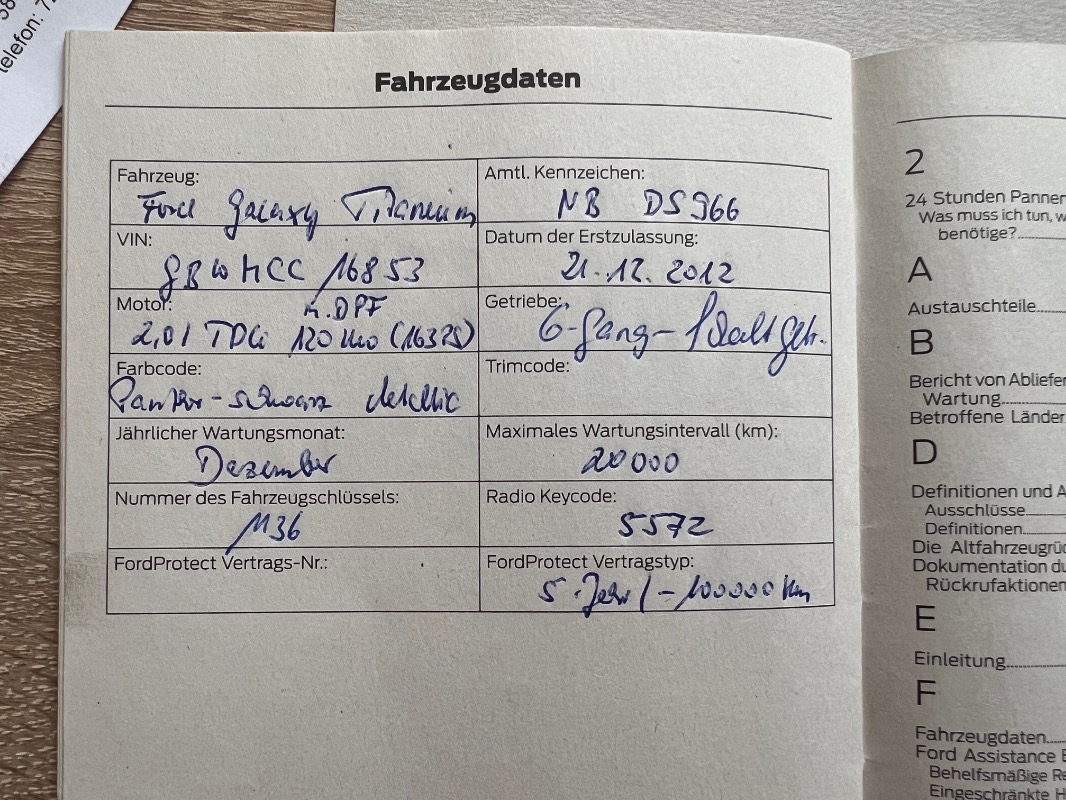 elefon: 7
Fahrzeugdaten
Fahrzeug:
Ford Galaxy Titanium
Amtl. Kennzeichen:
NB DS 966
VIN:
Datum der Erstzulassung:
21.12.2012
Motor:
m. DPF
2,0l TDCi 120 kW (163PS)
Getriebe:
6-Gang-Schaltgetr.
Farbcode:
Panther-schwarz Metallic
Trimcode:
Jährlicher Wartungsmonat:
Dezember
Maximales Wartungsintervall (km):
20000
Nummer des Fahrzeugschlüssels:
M36
Radio Keycode:
5572
FordProtect Vertrags-Nr.:
FordProtect Vertragstyp:
5-Jahr / - 100000 km
2
24 Stunden Panner
Was muss ich tun, w
benötige?
A
Austauschteile
B
Bericht von Abliefer
Wartung
Betroffene Länder
D
Definitionen und A
Ausschlüsse
Definitionen
Die Altfahrzeugrüc
Dokumentation du
Rückrufaktionen
E
Einleitung
F
Fahrzeugdaten
Ford Assistance E
Behelfsmäßige Re
Eingeschränkte H